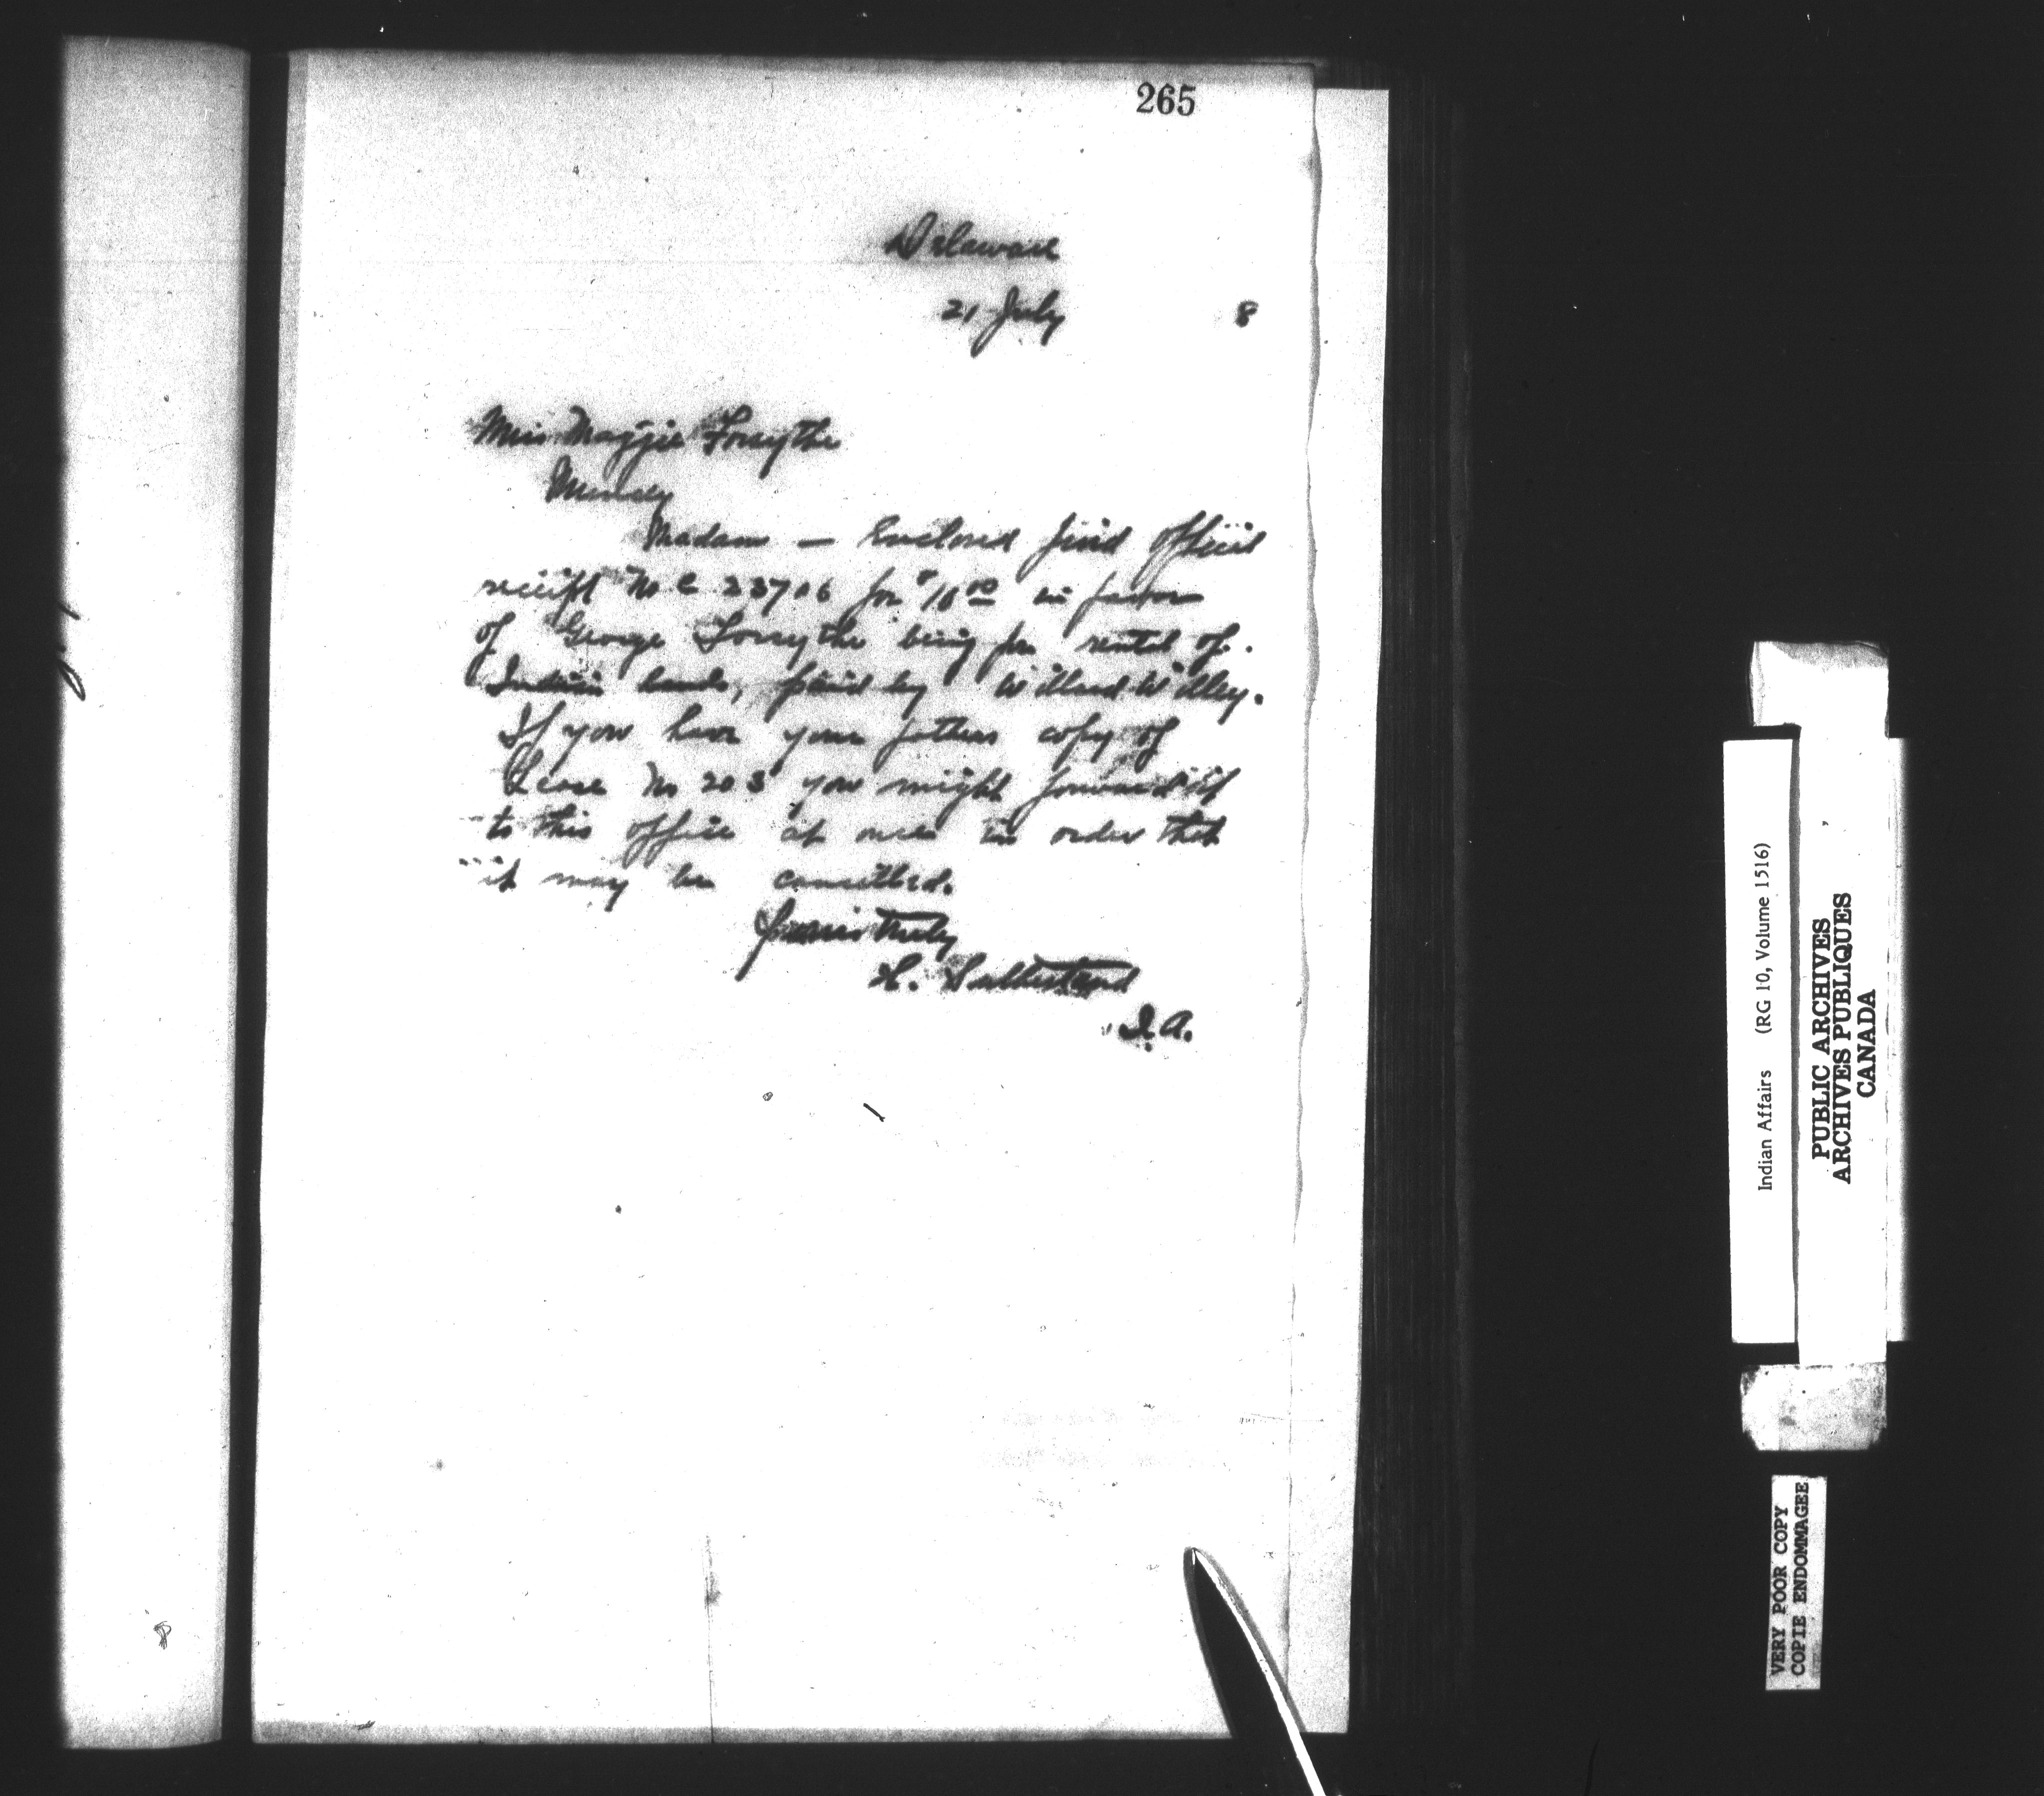 265
Delaware
21 July 8
Miss Maggie Forsythe
Muncey
Madam — Enclosed find official
receipt No C 23706 for $10.00 in favor
of George Forsythe being for rental of
Indian lands, paid by Willard Willey.
If you have your fathers copy of
Lease No 205 you might forward it
to this office at once in order that
it may be cancelled.
Yours truly
S. Sutherland
I.A.
Indian Affairs (RG 10, Volume 1516)
PUBLIC ARCHIVES
ARCHIVES PUBLIQUES
CANADA
VERY POOR COPY
COPIE ENDOMMAGEE